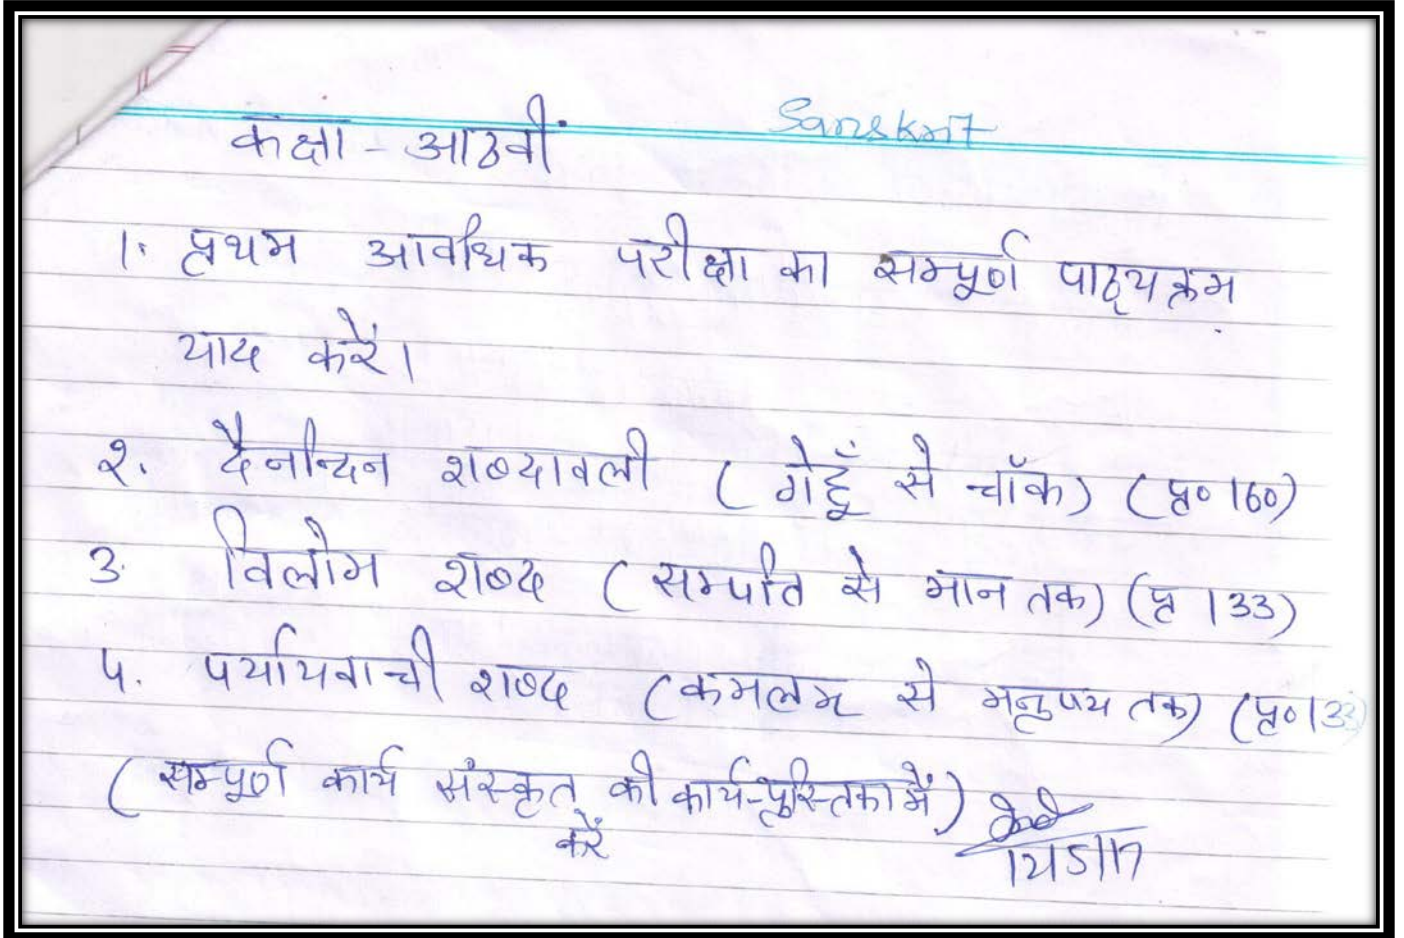 Sanskrit
कक्षा - आठवीं
1. प्रथम आवधिक परीक्षा का सम्पूर्ण पाठ्यक्रम
याद करें।
२. दैनन्दिन शब्दावली ( गेहूँ से चॉक) (पृ० 160)
3. विलोम शब्द ( सम्पति से मान तक) (पृ 133)
4. पर्यायवाची शब्द (कमलम् से मनुष्य तक) (पृ० 133)
( सम्पूर्ण कार्य संस्कृत की कार्य-पुस्तिका में)
करें
12/5/17